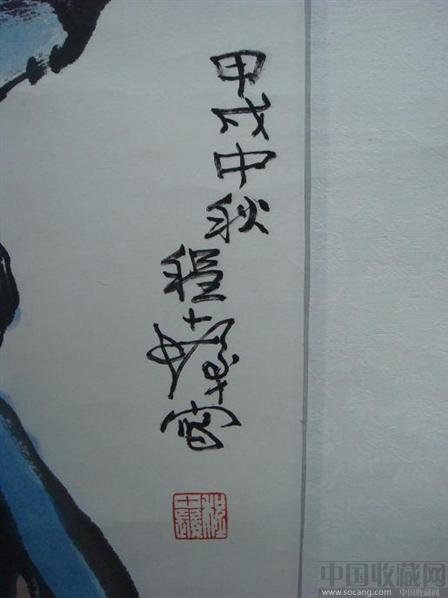 甲戌中秋
程十髮
中国收藏网
www.socang.com 中国收藏网